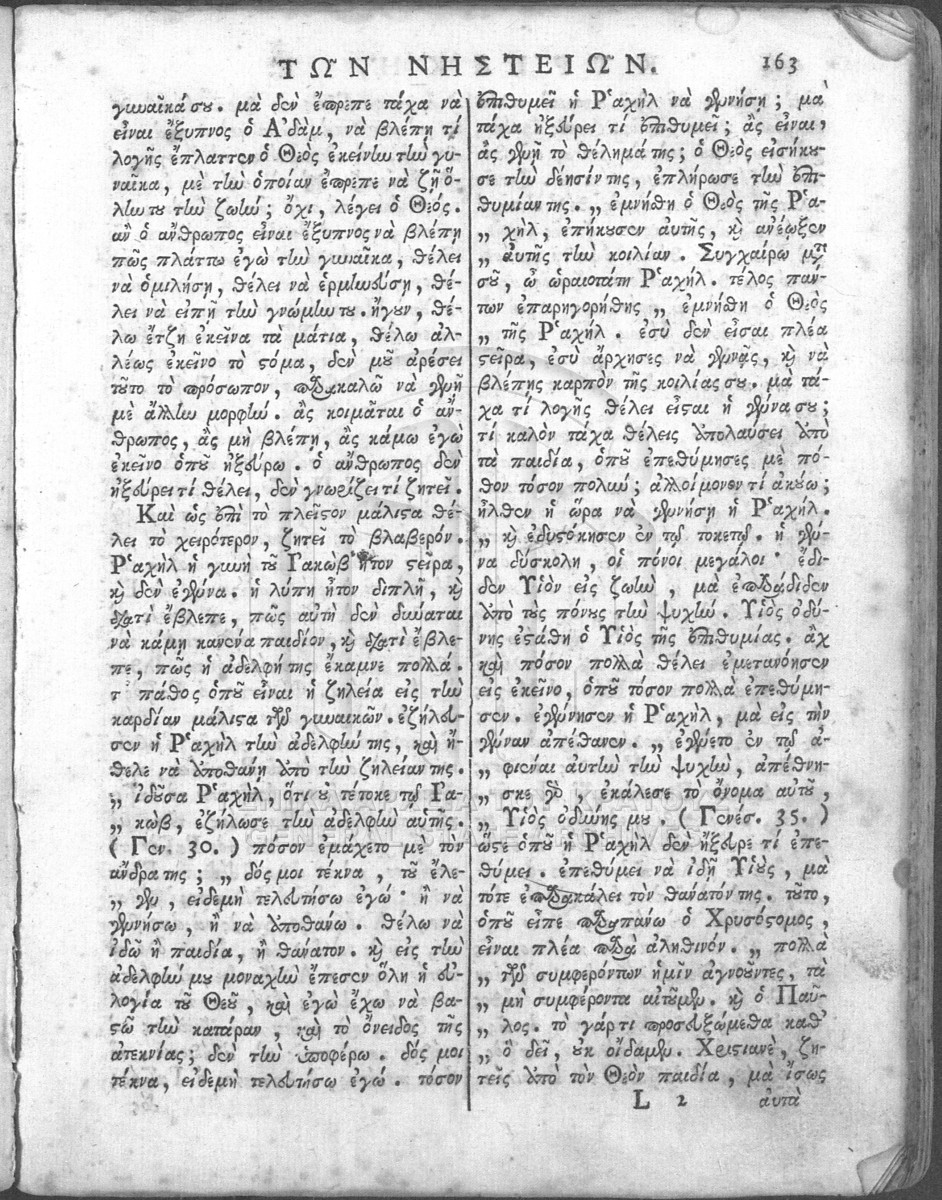 ΤΩ͂Ν ΝΗΣΤΕΙΩ͂Ν. 163
γυναῖκά σου. μὰ δὲν ἔπρεπε τάχα νὰ
εἶναι ἔξυπνος ὁ Ἀδὰμ, νὰ βλέπῃ τί
λογῆς ἔπλαττεν ὁ Θεὸς ἐκείνην τὴν γυ-
ναῖκα, μὲ τὴν ὁποίαν ἔπρεπε νὰ ζῇ ὅ-
λην του τὴν ζωήν; ὄχι, λέγει ὁ Θεός.
ἂν ὁ ἄνθρωπος εἶναι ἔξυπνος νὰ βλέπῃ
πῶς πλάττω ἐγὼ τὴν γυναῖκα, θέλει
νὰ ὁμιλήσῃ, θέλει νὰ ἑρμηνεύσῃ, θέ-
λει νὰ εἰπῇ τὴν γνώμην του. ἤγουν, θέ-
λω ἔτζη ἐκεῖνα τὰ μάτια, θέλω ἀλ-
λέως ἐκεῖνο τὸ στόμα, δὲν μοῦ ἀρέσει
τοῦτο τὸ πρόσωπον, παρακαλῶ νὰ γενῇ
μὲ ἄλλην μορφήν. ἂς κοιμᾶται ὁ ἄν-
θρωπος, ἂς μὴ βλέπῃ, ἂς κάμω ἐγὼ
ἐκεῖνο ὁποῦ ἠξεύρω. ὁ ἄνθρωπος δὲν
ἠξεύρει τί θέλει, δὲν γνωρίζει τί ζητεῖ.
Καὶ ὡς ἐπὶ τὸ πλεῖστον μάλιστα θέ-
λει τὸ χειρότερον, ζητεῖ τὸ βλαβερόν.
Ῥαχὴλ ἡ γυνὴ τοῦ Ἰακὼβ ἦτον στεῖρα,
καὶ δὲν ἐγέννα. ἡ λύπη ἦτον διπλῆ, καὶ
διατὶ ἔβλεπε, πῶς αὐτὴ δὲν δύναται
νὰ κάμῃ κανένα παιδίον, καὶ διατὶ ἔβλε-
πε, πῶς ἡ ἀδελφή της ἔκαμνε πολλά.
τὶ πάθος ὁποῦ εἶναι ἡ ζηλεία εἰς τὴν
καρδίαν μάλιστα τῶν γυναικῶν. ἐζήλευ-
σεν ἡ Ῥαχὴλ τὴν ἀδελφήν της, καὶ ἤ-
θελε νὰ ἀποθάνῃ ἀπὸ τὴν ζηλείαν της.
„ ἰδοῦσα Ῥαχὴλ, ὅτι οὐ τέτοκε τῷ Ἰα-
„ κὼβ, ἐζήλωσε τὴν ἀδελφὴν αὑτῆς.
(Γεν. 30.) πόσον ἐμάχετο μὲ τὸν
ἄνδρα της; „ δός μοι τέκνα, τοῦ ἔλε-
„ γεν, εἰδεμὴ τελευτήσω ἐγώ· ἢ νὰ
γεννήσω, ἢ νὰ ἀποθάνω. θέλω νὰ
ἰδῶ ἢ παιδία, ἢ θάνατον. καὶ εἰς τὴν
ἀδελφήν μου μοναχὴν ἔπεσεν ὅλη ἡ εὐ-
λογία τοῦ Θεοῦ, καὶ ἐγὼ ἔχω νὰ βα-
στῶ τὴν κατάραν, καὶ τὸ ὄνειδος τῆς
ἀτεκνίας; δὲν τὴν ὑποφέρω. δός μοι
τέκνα, εἰδεμὴ τελευτήσω ἐγώ. τόσον
ἐπιθυμεῖ ἡ Ῥαχὴλ νὰ γεννήσῃ; μὰ
τάχα ἠξεύρει τί ἐπιθυμεῖ; ἂς εἶναι,
ἂς γενῇ τὸ θέλημά της; ὁ Θεὸς εἰσήκου-
σε τὴν δέησίν της, ἐπλήρωσε τὴν ἐπι-
θυμίαν της. „ ἐμνήθη ὁ Θεὸς τῆς Ῥα-
„ χὴλ, ἐπήκουσεν αὐτῆς, καὶ ἀνέῳξεν
„ αὐτῆς τὴν κοιλίαν. Συγχαίρω μετὰ
σοῦ, ὦ ὡραιοτάτη Ῥαχήλ. τέλος πάν-
των ἐπαρηγορήθης „ ἐμνήθη ὁ Θεὸς
„ τῆς Ῥαχήλ. ἐσὺ δὲν εἶσαι πλέα
στεῖρα, ἐσὺ ἄρχησες νὰ γεννᾷς, καὶ νὰ
βλέπῃς καρπὸν τῆς κοιλίας σου. μὰ τά-
χα τί λογῆς θέλει εἶσται ἡ γέννα σου;
τί καλὸν τάχα θέλεις ἀπολαύσει ἀπὸ
τὰ παιδία, ὁποῦ ἐπεθύμησες μὲ πό-
θον τόσον πολύν; ἀλλοίμονον τί ἀκούω;
ἦλθεν ἡ ὥρα νὰ γεννήσῃ ἡ Ῥαχήλ.
„ καὶ ἐδυστόκησεν ἐν τῷ τοκετῷ. ἡ γέν-
να δύσκολη, οἱ πόνοι μεγάλοι· ἔδι-
δεν Υἱὸν εἰς ζωὴν, μὰ ἐπαράδιδεν
ἀπὸ τοὺς πόνους τὴν ψυχήν. Υἱὸς ὀδύ-
νης ἐστάθη ὁ Υἱὸς τῆς ἐπιθυμίας. ἂχ
καὶ πόσον πολλὰ θέλει ἐμετανόησεν
εἰς ἐκεῖνο, ὁποῦ τόσον πολλὰ ἐπεθύμη-
σεν. ἐγέννησεν ἡ Ῥαχὴλ, μὰ εἰς τὴν
γένναν ἀπέθανεν. „ ἐγένετο ἐν τῷ ἀ-
„ φιέναι αὐτὴν τὴν ψυχὴν, ἀπέθνη-
„ σκε γὰρ, ἐκάλεσε τὸ ὄνομα αὐτοῦ,
„ Υἱὸς ὀδύνης μου. (Γενέσ. 35.)
ὥστε ὁποῦ ἡ Ῥαχὴλ δὲν ἤξευρε τί ἐπε-
θύμει. ἐπεθύμει νὰ ἰδῇ Υἱοὺς, μὰ
τότε ἐπαρακάλει τὸν θάνατόν της. τοῦτο,
ὁποῦ εἶπε παραπάνω ὁ Χρυσόστομος,
εἶναι πλέα παρὰ ἀληθινόν. „ πολλὰ
„ τῶν συμφερόντων ἡμῖν ἀγνοοῦντες, τὰ
„ μὴ συμφέροντα αἰτοῦμεν. καὶ ὁ Παῦ-
„ λος. τὸ γάρ τι προσευξώμεθα καθ'
„ ὃ δεῖ, οὐκ οἴδαμεν. Χριστιανὲ, ζη-
τεῖς ἀπὸ τὸν Θεὸν παιδία, μὰ ἴσως
L 2 αὐτὰ